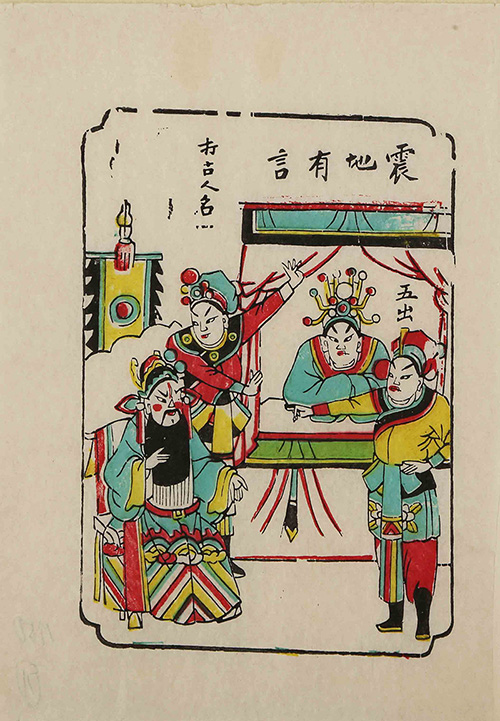 震地有言
打古人名
五出